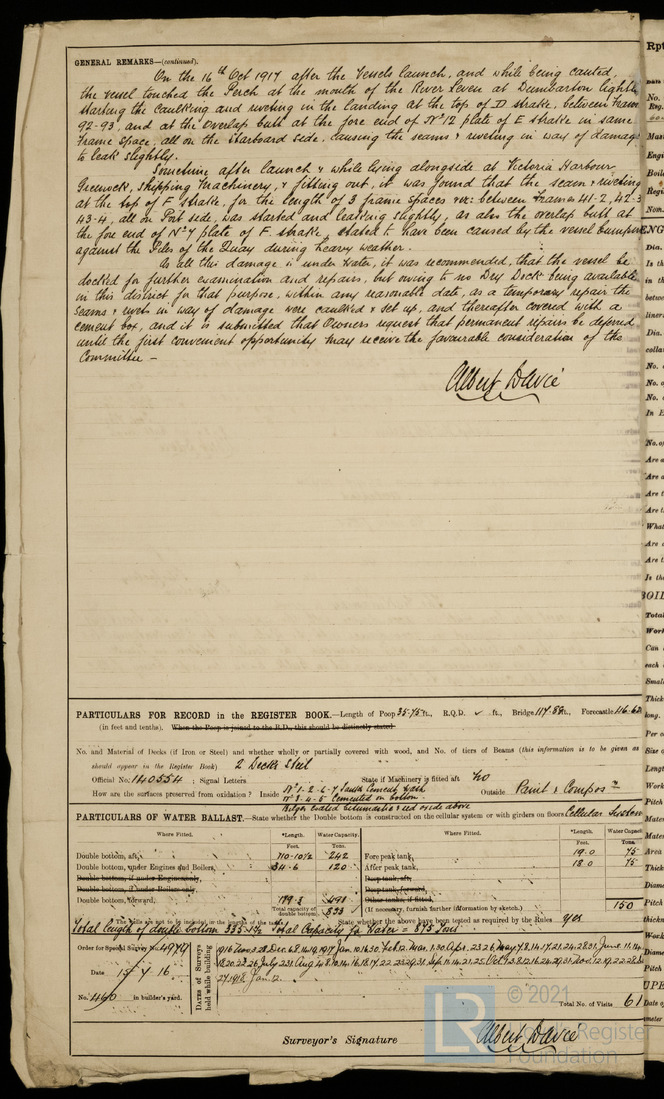 GENERAL REMARKS—(continued).
On the 16th Oct 1917 after the Vessels launch, and while being canted,
the vessel touched the Perch at the mouth of the River Leven at Dumbarton lightly
starting the caulking and riveting in the landing at the top of D strake, between Frames
92-93, and at the overlap butt at the fore end of No 12 plate of E strake in same
Frame space, all on the Starboard side, causing the seams & riveting in way of damage
to leak slightly.
Sometime after launch & while lying alongside at Victoria Harbour
Greenock, Shipping Machinery, & fitting out, it was found that the seam & riveting
at the top of F strake, for the length of 3 frame spaces viz: between Frames 41-2, 42-3
43-4, all on Port side, was started and leaking slightly, as also the overlap butt at
the fore end of No 7 plate of F. strake, stated to have been caused by the vessel bumping
against the Piles of the Quay during heavy weather.
As all this damage is under water, it was recommended, that the vessel be
docked for further examination and repairs, but owing to no Dry Dock being available
in this district for that purpose, within any reasonable date, as a temporary repair the
seams & rivets in way of damage were caulked & set up, and thereafter covered with a
cement box, and it is submitted that Owners request that permanent repairs be deferred
until the first convenient opportunity may receive the favourable consideration of the
Committee —
Albert Davie
PARTICULARS FOR RECORD in the REGISTER BOOK.—Length of Poop 35.75 ft., R.Q.D. ✓ ft., Bridge 117.88 ft., Forecastle
(in feet and tenths). When the Poop is joined to the B.D., this should be distinctly stated.
No. and Material of Decks (if Iron or Steel) and whether wholly or partially covered with wood, and No. of tiers of Beams (this information is to be given as
should appear in the Register Book) 2 Decks Steel
Official No. 140554 ; Signal Letters State if Machinery is fitted aft No
How are the surfaces preserved from oxidation? Inside No 1-2-6-7 Tanks Cement Wash Outside Paint & Compos n
No 3-4-5 Cemented on bottom
Bilges coated bitumastic & red oxide above
PARTICULARS OF WATER BALLAST.—State whether the Double bottom is constructed on the cellular system or with girders on floors Cellular System
Where Fitted. *Length. Water Capacity. Where Fitted. *Length. Water Capaci
Feet. Tons. Feet. Tons.
Double bottom, aft, 110-10½ 242 Fore peak tank, 19.0 75
Double bottom, under Engines and Boilers, 34-6 120 After peak tank, 18.0 75
Double bottom, if under Engines only, Deep tank, aft,
Double bottom, if under Boilers only, Deep tank, forward,
Double bottom, forward, 189-9 491 Other tanks, if fitted,
Total capacity of double bottom 853 (If necessary, furnish further information by sketch.) 150
State whether the above have been tested as required by the Rules yes
Total length of double bottom 335-1½ Total Capacity for Water = 875 Tons
Order for Special Survey No. 4974
Date 15/7/16
No. 460 in builder's yard.
Dates of Surveys held while building
Total No. of Visits 61
Surveyor's Signature Albert Davie
LR © 2021
Lloyd's Register
Foundation